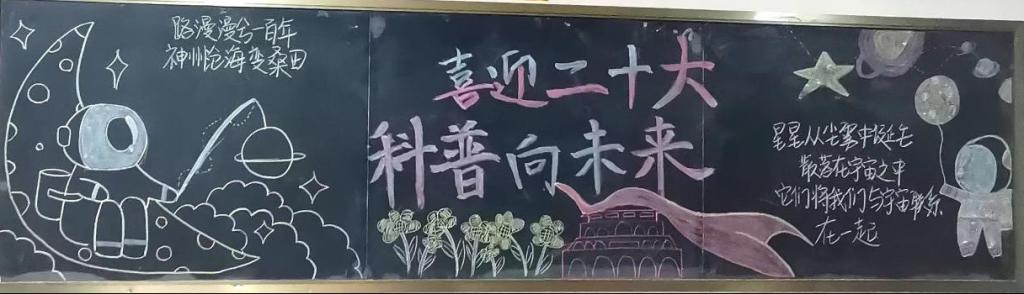 路漫漫兮一百年
神州沧海变桑田
喜迎二十大
科普向未来
星星从尘雾中诞生
散落在宇宙之中
它们将我们与宇宙联系
在一起